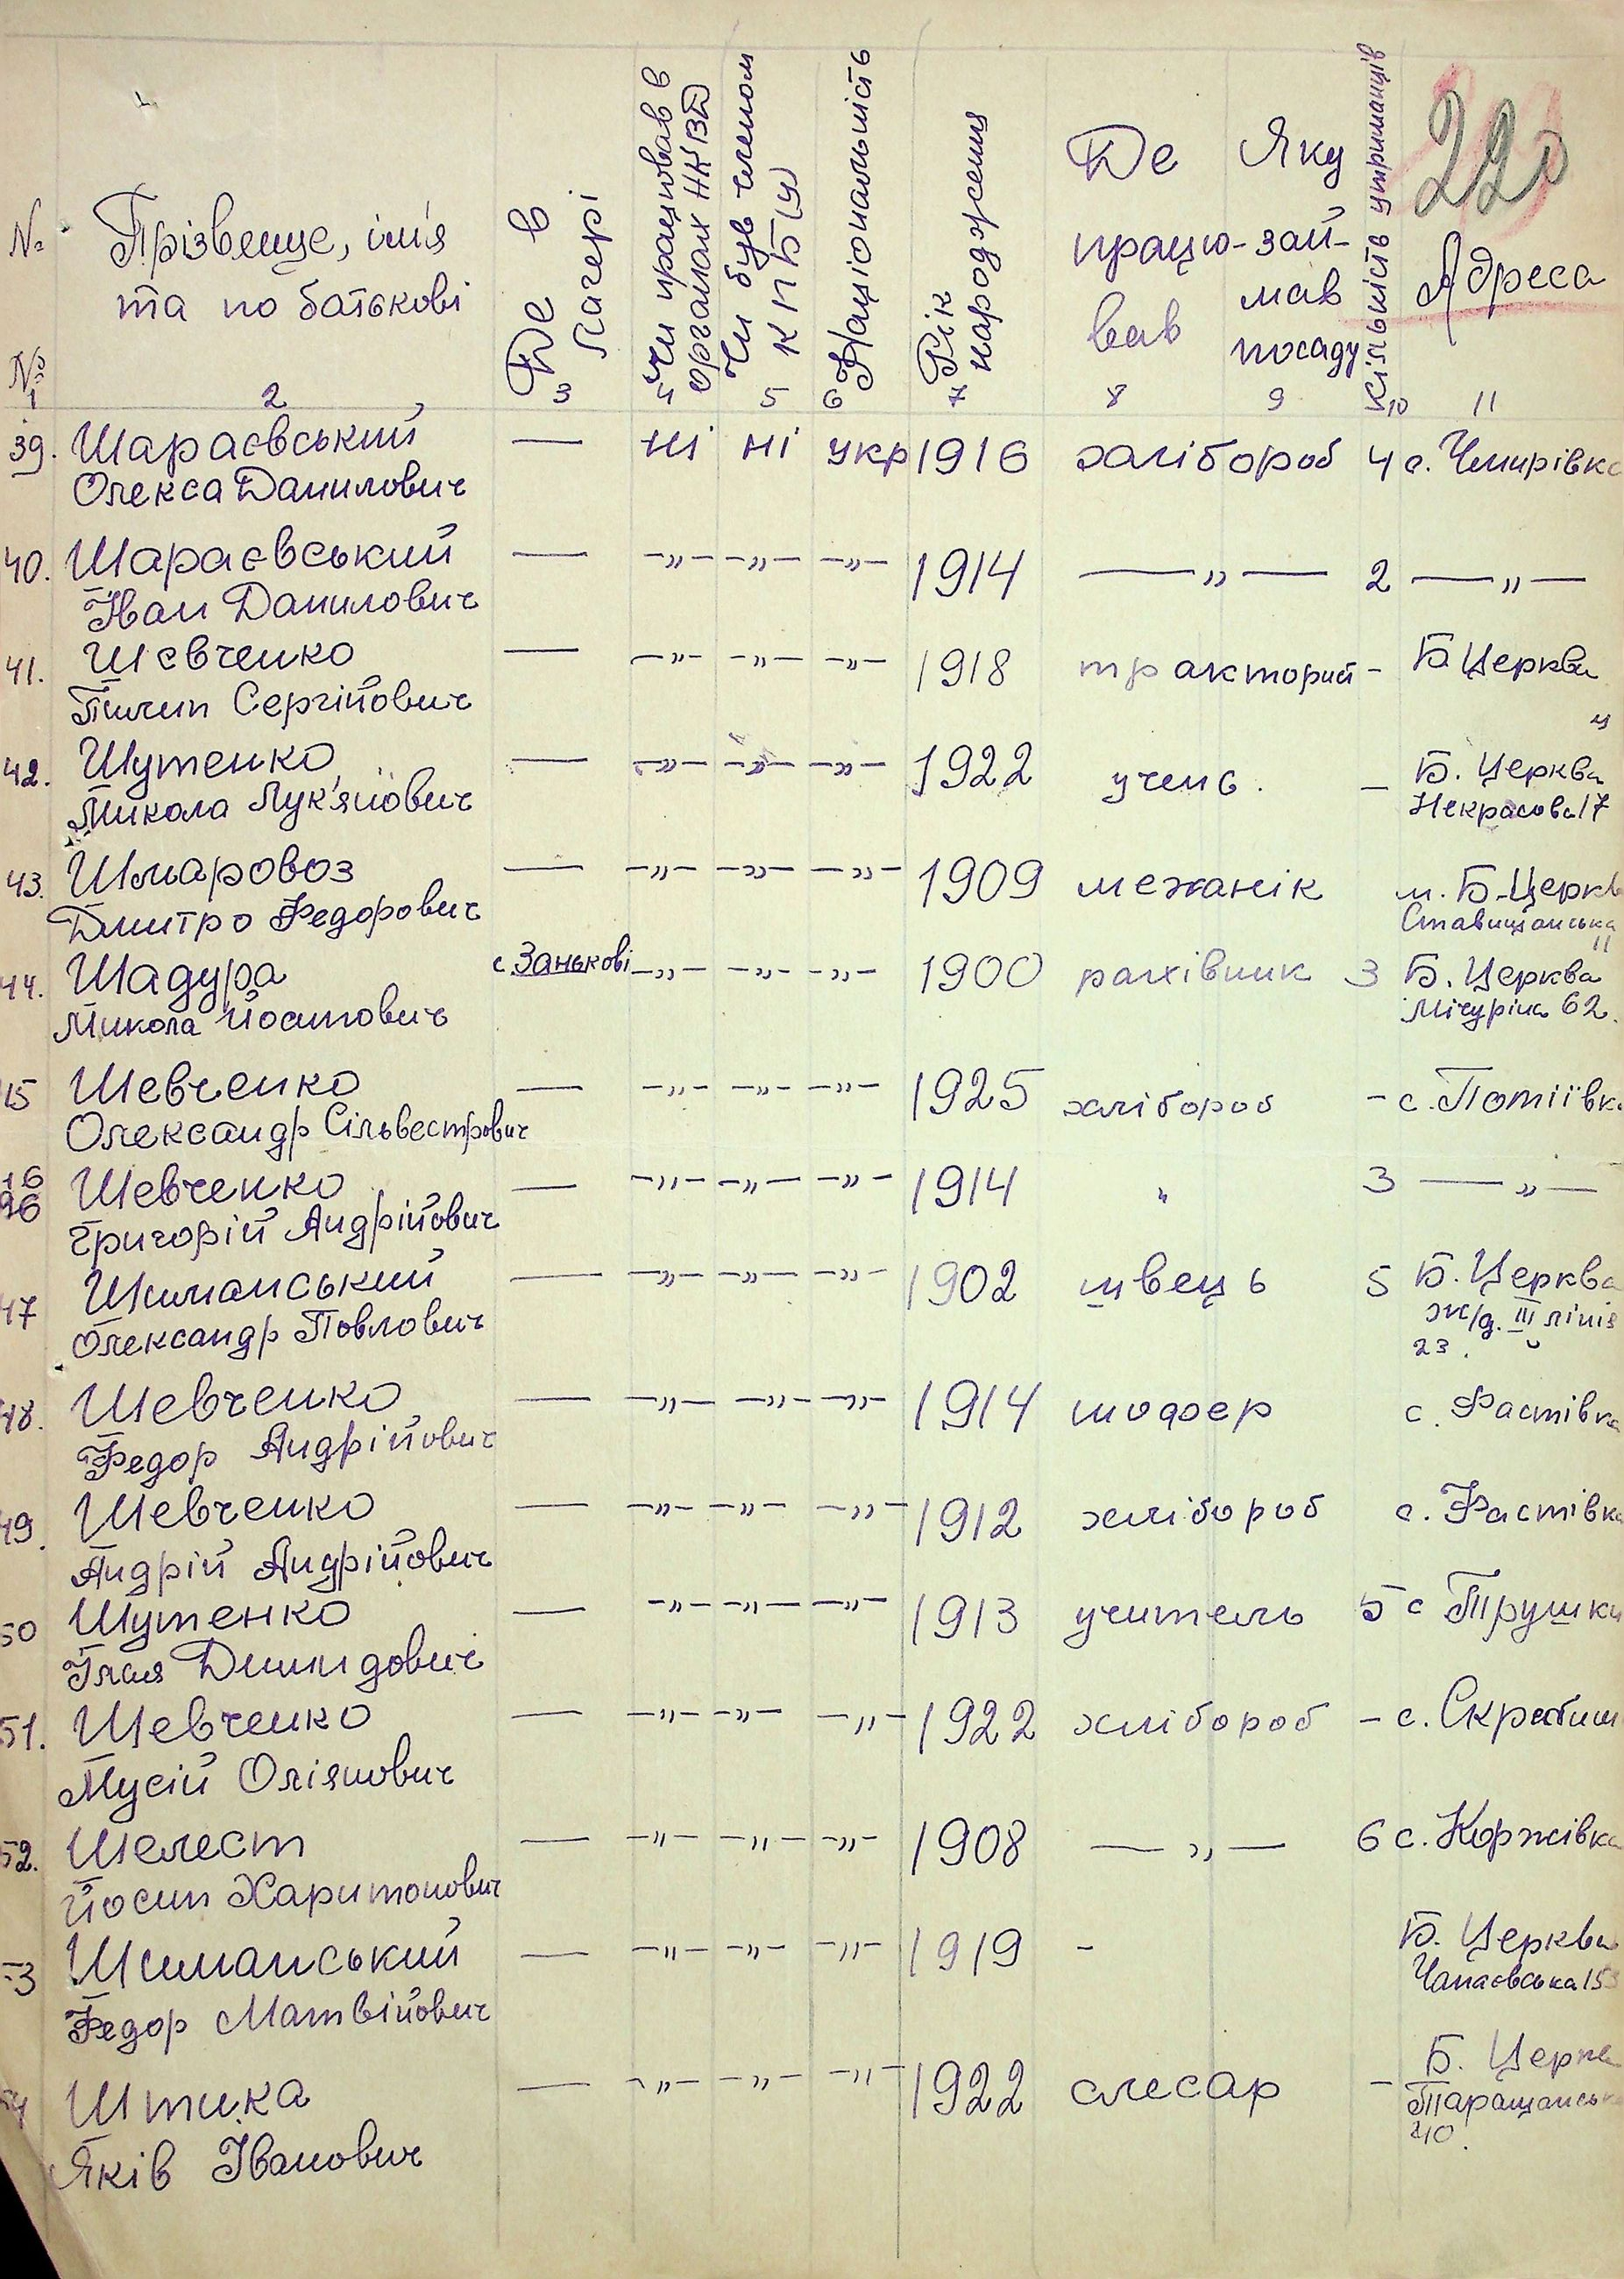 220
№ Прізвище, ім'я та по батькові Де в Лагері Чи працював в органах НКВД Чи був членом КПБ(у) Національність Рік народження Де працював Яку займав посаду Кількість утриманців Адреса
№ 1 2 3 4 5 6 7 8 9 10 11
39. Шараєвський — ні ні укр 1916 хлібороб 4 с. Чмирівка
Олекса Данилович
40. Шараєвський — —„— —„— —„— 1914 —„— 2 —„—
Іван Данилович
41. Шевченко — —„— —„— —„— 1918 тракторист - Б Церква
Пилип Сергійович
42. Шутенко — —„— —„— —„— 1922 учень. — Б. Церква
Микола Лук'янович Некрасова 17
43. Шмаровоз — —„— —„— —„— 1909 механік м. Б-Церкв
Дмитро Федорович Ставищанська 11
44. Шадура с. Занькові —„— —„— —„— 1900 рахівник 3 Б. Церква
Микола Йосипович Мічуріна 62.
45 Шевченко — —„— —„— —„— 1925 хлібороб - с. Потіївка
Олександр Сільвестрович
46 Шевченко — —„— —„— —„— 1914 „ 3 —„—
Григорій Андрійович
47 Шиманський — —„— —„— —„— 1902 швець 5 Б. Церква
Олександр Павлович ж/д. III лінія
23.
48. Шевченко — —„— —„— —„— 1914 шофер с. Фастівка
Федор Андрійович
49. Шевченко — —„— —„— —„— 1912 хлібороб с. Фастівка
Андрій Андрійович
50 Шутенко — —„— —„— —„— 1913 учитель 5 с Трушки
Ілля Демидович
51. Шевченко — —„— —„— —„— 1922 хлібороб - с. Скребиш
Мусій Оліянович
52. Шелест — —„— —„— —„— 1908 —„— 6 с. Коржівка
Йосип Харитонович
53 Шиманський — —„— —„— —„— 1919 - Б. Церква
Федор Матвійович Чапаєвська 153
54 Штика — —„— —„— —„— 1922 слесар - Б. Церкв
Яків Іванович Таращанська
40.